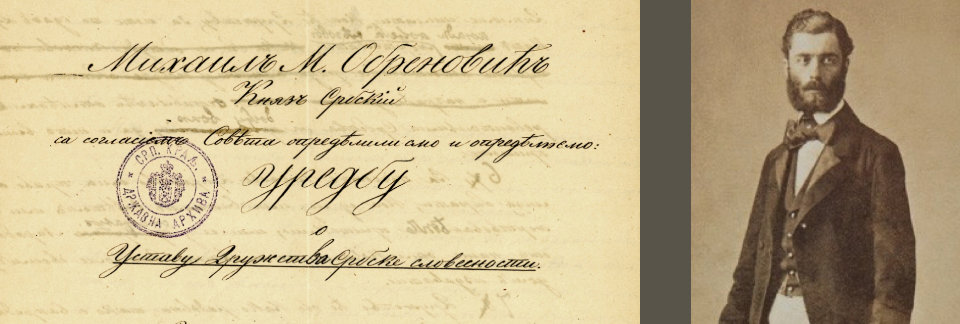 Михаилъ М. Обреновићъ
Князъ Србскій
са согласіемъ Совѣта опредѣлили смо и опредѣлюемо:
Уредбу
о
Уставу Дружства Србске словесности.
СРП. КРАЉ.
ДРЖАВНА АРХИВА